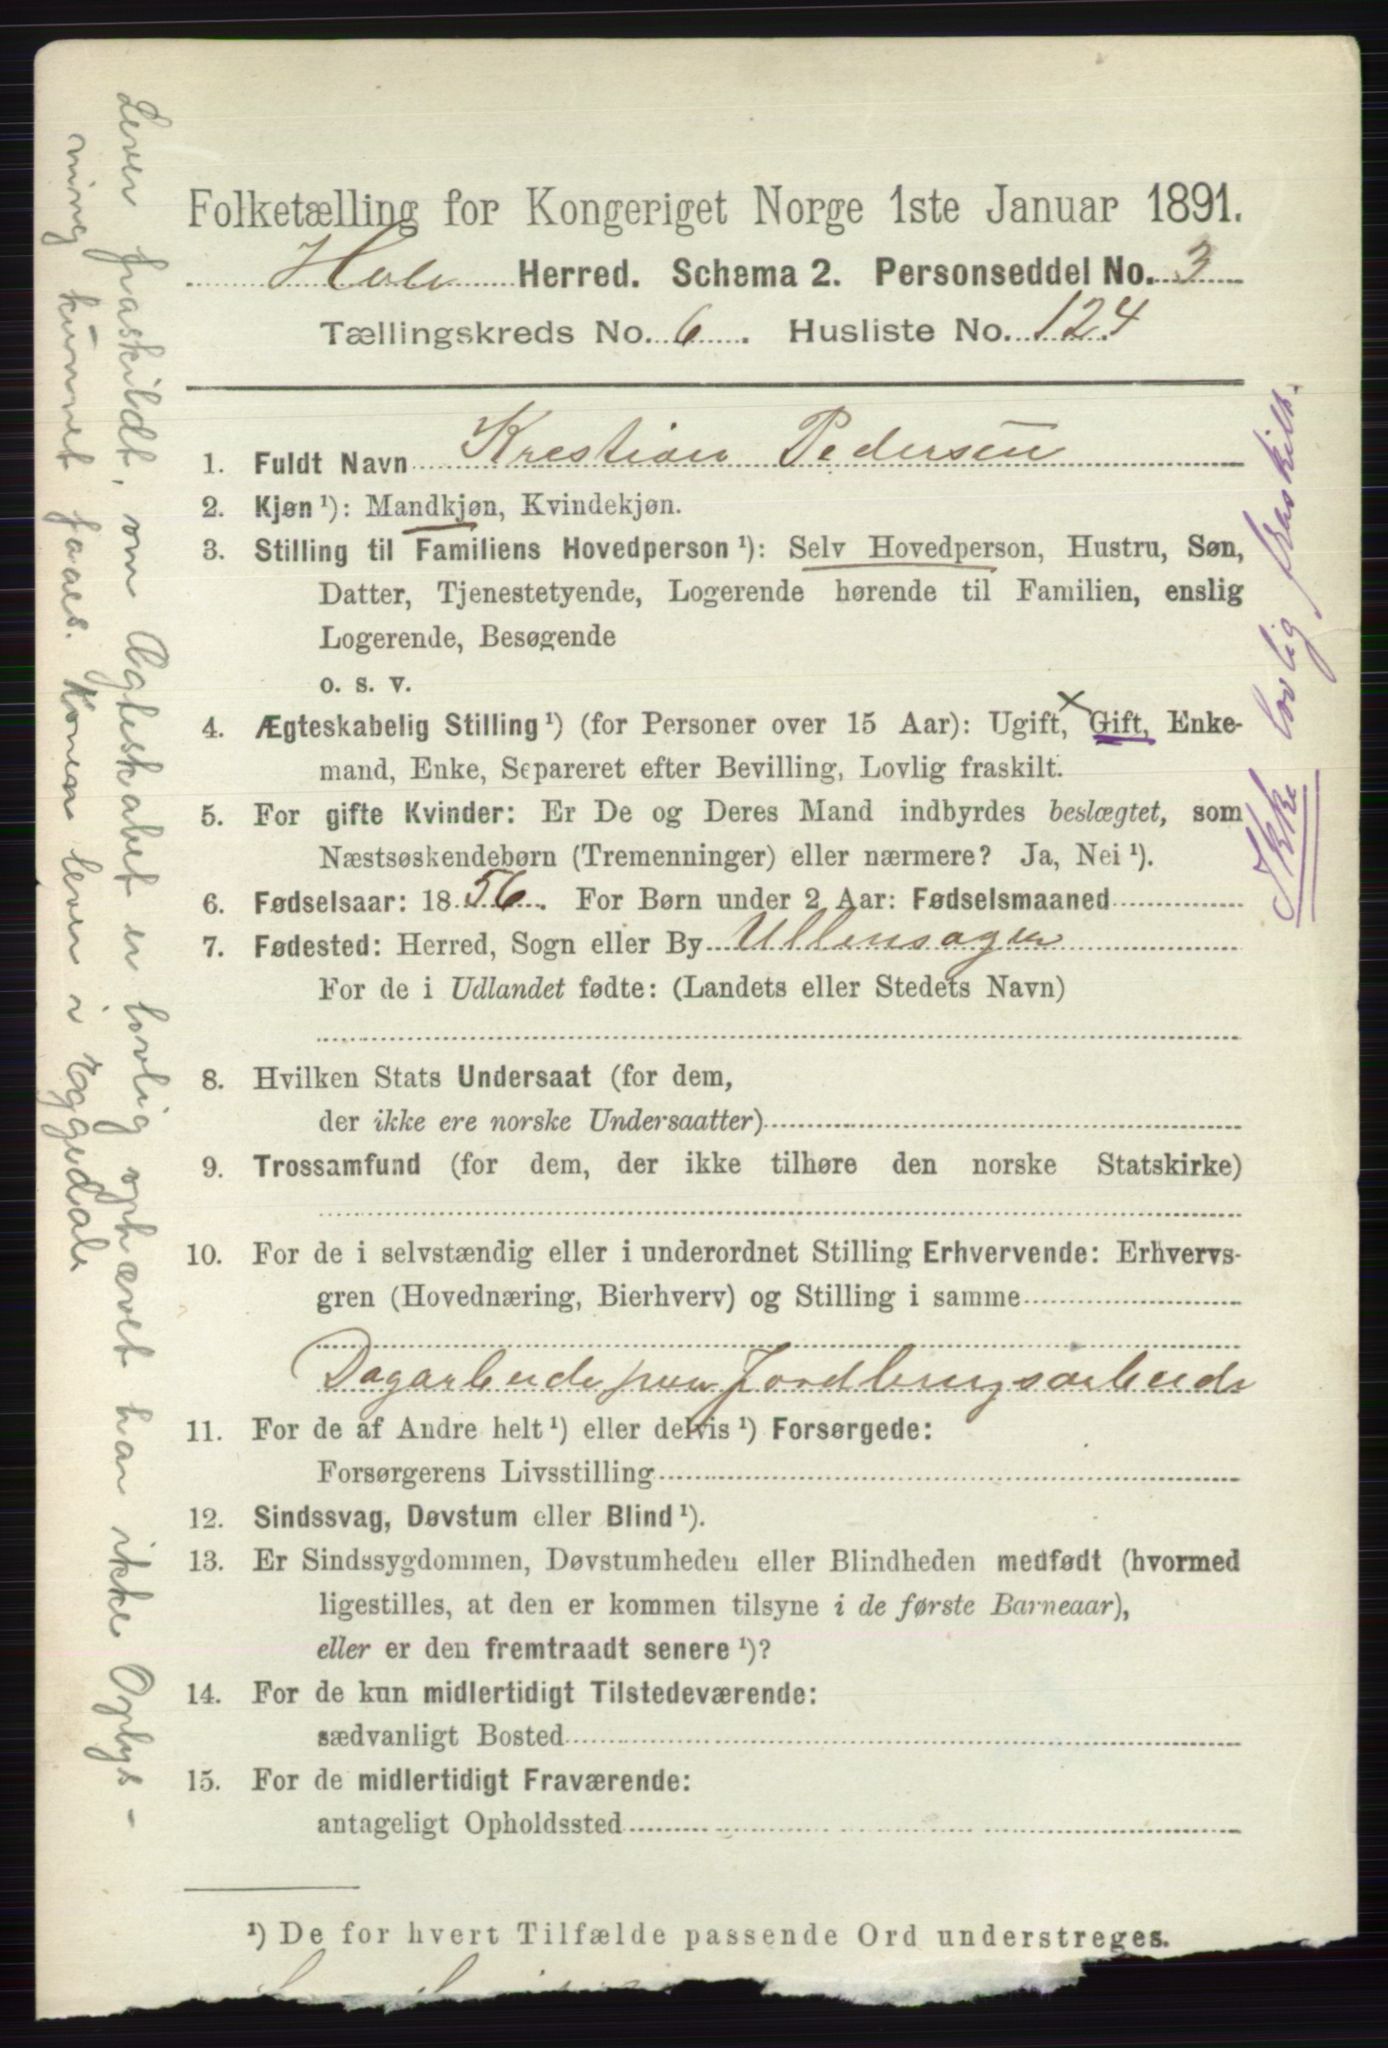 Folketælling for Kongeriget Norge 1ste Januar 1891.
Hole Herred. Schema 2. Personseddel No. 3
Tællingskreds No. 6. Husliste No. 124
1. Fuldt Navn Krestian Pedersen
2. Kjøn ¹): Mandkjøn, Kvindekjøn.
3. Stilling til Familiens Hovedperson ¹): Selv Hovedperson, Hustru, Søn,
Datter, Tjenestetyende, Logerende hørende til Familien, enslig
Logerende, Besøgende
o. s. v.
4. Ægteskabelig Stilling ¹) (for Personer over 15 Aar): Ugift, × Gift, Enke-
mand, Enke, Separeret efter Bevilling, Lovlig fraskilt.
5. For gifte Kvinder: Er De og Deres Mand indbyrdes beslægtet, som
Næstsøskendebørn (Tremenninger) eller nærmere? Ja, Nei ¹).
6. Fødselsaar: 1856. For Børn under 2 Aar: Fødselsmaaned
7. Fødested: Herred, Sogn eller By Ullensager
For de i Udlandet fødte: (Landets eller Stedets Navn)
8. Hvilken Stats Undersaat (for dem,
der ikke ere norske Undersaatter)
9. Trossamfund (for dem, der ikke tilhøre den norske Statskirke)
10. For de i selvstændig eller i underordnet Stilling Erhvervende: Erhvervs-
gren (Hovednæring, Bierhverv) og Stilling i samme
Dagarbeide paa Jordbrugsarbeide
11. For de af Andre helt ¹) eller delvis ¹) Forsørgede:
Forsørgerens Livsstilling
12. Sindssvag, Døvstum eller Blind ¹).
13. Er Sindssygdommen, Døvstumheden eller Blindheden medfødt (hvormed
ligestilles, at den er kommen tilsyne i de første Barneaar),
eller er den fremtraadt senere ¹)?
14. For de kun midlertidigt Tilstedeværende:
sædvanligt Bosted
15. For de midlertidigt Fraværende:
antageligt Opholdssted
¹) De for hvert Tilfælde passende Ord understreges.
Lever fraskildt, om Ægteskabet er lovlig ophævet har ikke Oplys-
ning kunnet faaes. Konen lever i Eggedale
Ikke lovlig fraskilt.